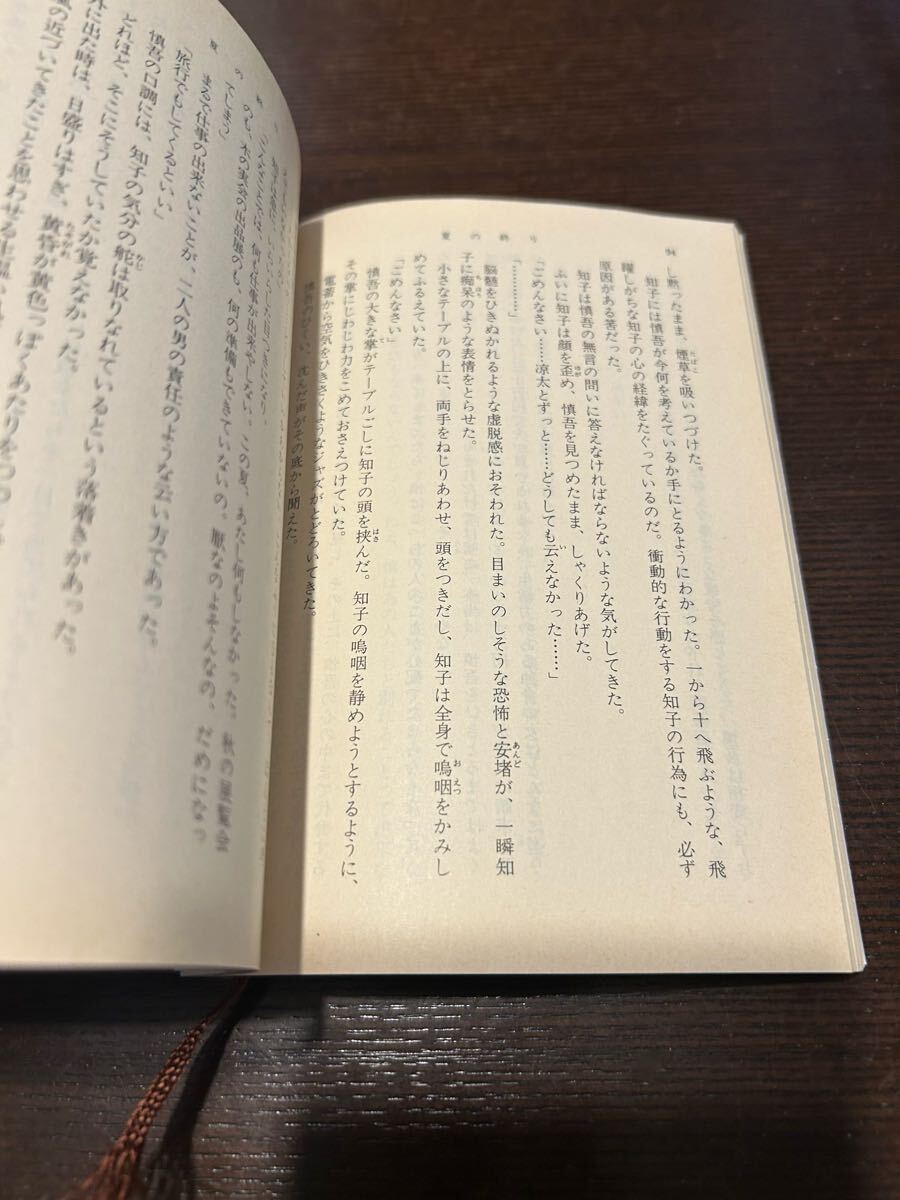 94
夏の終り
し黙ったまま、煙草を吸いつづけた。
知子には慎吾が今何を考えているか手にとるようにわかった。一から十へ飛ぶような、飛
躍しがちな知子の心の経緯をたぐっているのだ。衝動的な行動をする知子の行為にも、必ず
原因がある筈だった。
知子は慎吾の無言の問いに答えなければならないような気がしてきた。
ふいに知子は顔を歪め、慎吾を見つめたまま、しゃくりあげた。
「ごめんなさい……涼太とずっと……どうしても云えなかった……」
「………」
脳髄をひきぬかれるような虚脱感におそわれた。目まいのしそうな恐怖と安堵が、一瞬知
子に痴呆のような表情をとらせた。
小さなテーブルの上に、両手をねじりあわせ、頭をつきだし、知子は全身で嗚咽をかみし
めてふるえていた。
「ごめんなさい」
慎吾の大きな掌がテーブルごしに知子の頭を挟んだ。知子の嗚咽を静めようとするように、
その掌にじわじわ力をこめておさえつけていた。
電蓄から空気をひきさくようなジャズがとどろいてきた。
沈んだ声がその底から聞えた。
夏の終り
「こんなことでは、何も仕事が出来やしない。この夏、あたし何もしなかった。秋の展覧会
のも、木の実会の出品展のも、何の準備もできていないの。厭なのよそんなの、だめになっ
てしまう」
まるで仕事の出来ないことが、二人の男の責任のような云い方であった。
「旅行でもしてくるといい」
慎吾の口調には、知子の気分の舵は取りなれているという落着きがあった。
どれほど、そこにそうしていたか覚えなかった。
外に出た時は、日盛りはすぎ、黄昏が黄色っぽくあたりをつつ
の近づいてきたことを思わせる